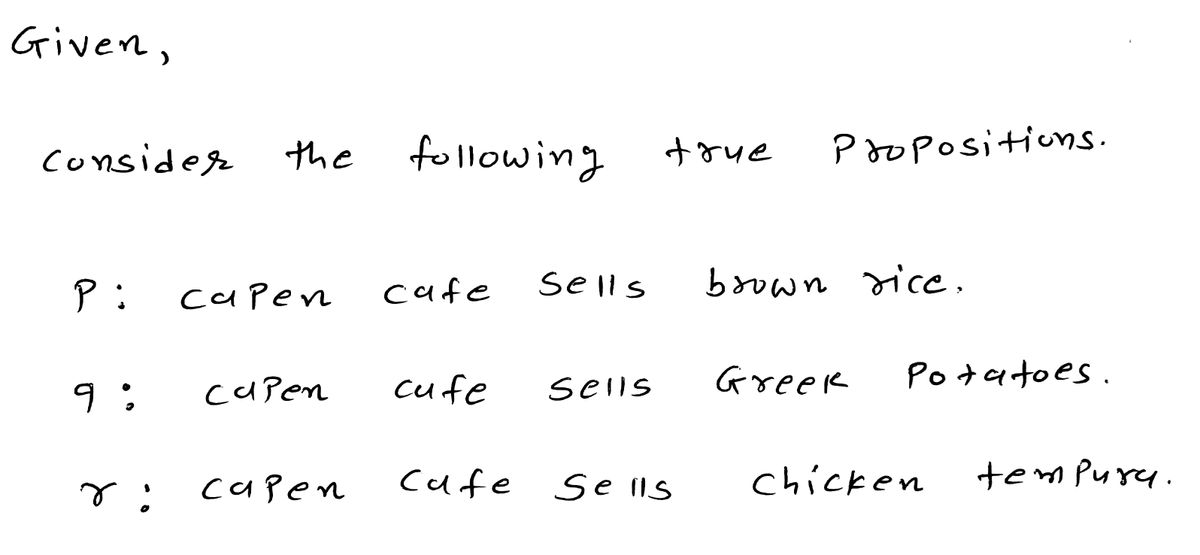 Given,
Consider the following true Propositions.
P: Capen cafe sells brown rice.
q: Capen cafe sells Greek Potatoes.
r: Capen Cafe Sells Chicken tempura.